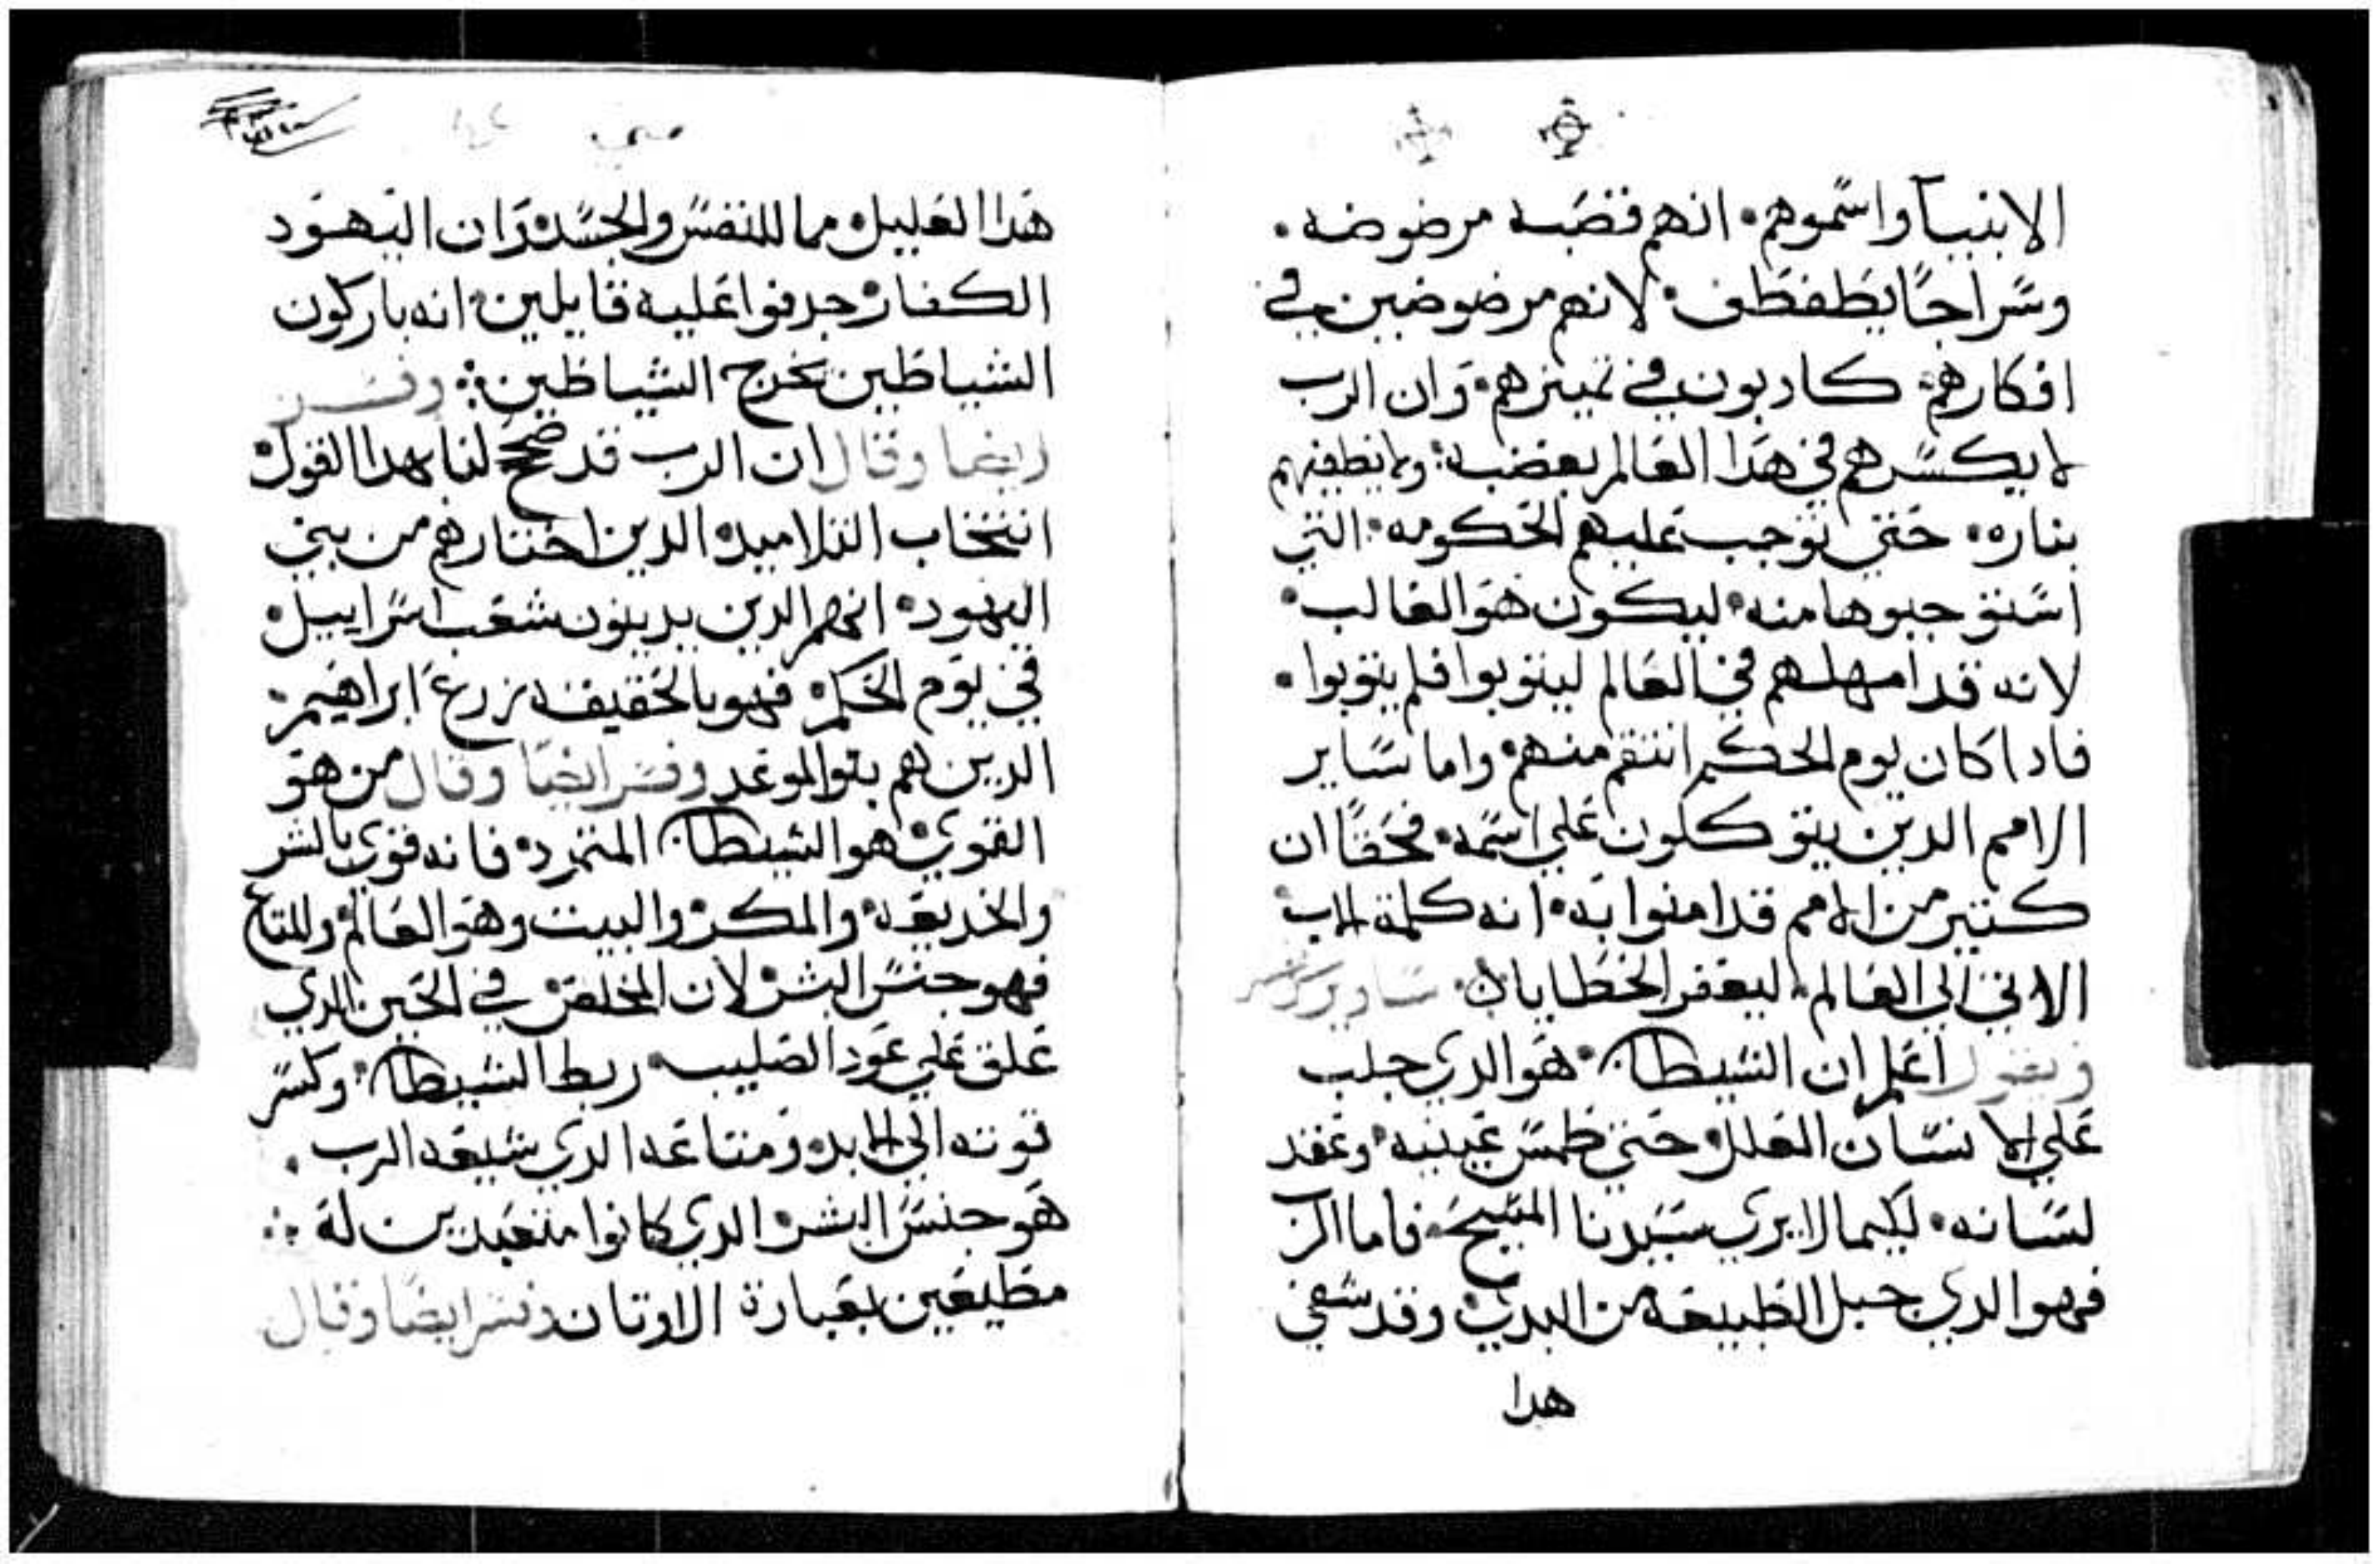 الانبيآ واسموهم انهم قصبه مرضوضه.
وسراجًا يطفطف لانهم مرضوضين في
افكارهم كادبون في تميزهم وان الرب
لا يكسرهم في هدا العالم بغضبه ولا يطفيهم
بناره حتي توجب عليهم الحكومه التي
استوجبوها منه ليكون هو الغالب
لانه قد امهلهم في العالم ليتوبوا فلم يتوبوا
فادا كان يوم الحكم انتقم منهم واما ساير
الامم الدين يتوكلون علي اسمه فحقًا ان
كتير من الامم قد امنوا به انه كلمة الاب
الاتي الي العالم ليغفر الخطايا
ويقول اعلم ان الشيطان هو الدي جلب
علي الانسان العلل حتي طمس عينيه وعقد
لسانه لكيما لا يري سيدنا المسيح فاما الرب
فهو الدي جبل الطبيعه من البدي وقد شفي
هدا
متي
هدا العليل مما للنفس والجسد وان اليهود
الكفار جدفوا عليه قايلين انه باركون
الشياطين يخرج الشياطين وفسر
ايضا وقال ان الرب قد صحح لنا بهدا القول
انتخاب التلاميد الدين اختارهم من بني
اليهود انهم الدين يدينون شعب اسراييل
في يوم الحكم فهو بالحقيقه زرع ابراهيم
الدين هم بنو الموعد وفسر ايضا وقال من هو
القوي هو الشيطان المتمرد فانه قوي بالشر
والخديعه والمكر والبيت وهو العالم والمتاع
فهو جنس البشر لان المخلص في الحين الدي
علق علي عود الصليب ربط الشيطان وكسر
قوته الي الابد ومتاعه الدي شيعه الرب.
هو جنس البشر الدي كانوا متعبدين له
مطيعين بعبادة الاوتان وفسر ايضًا وقال